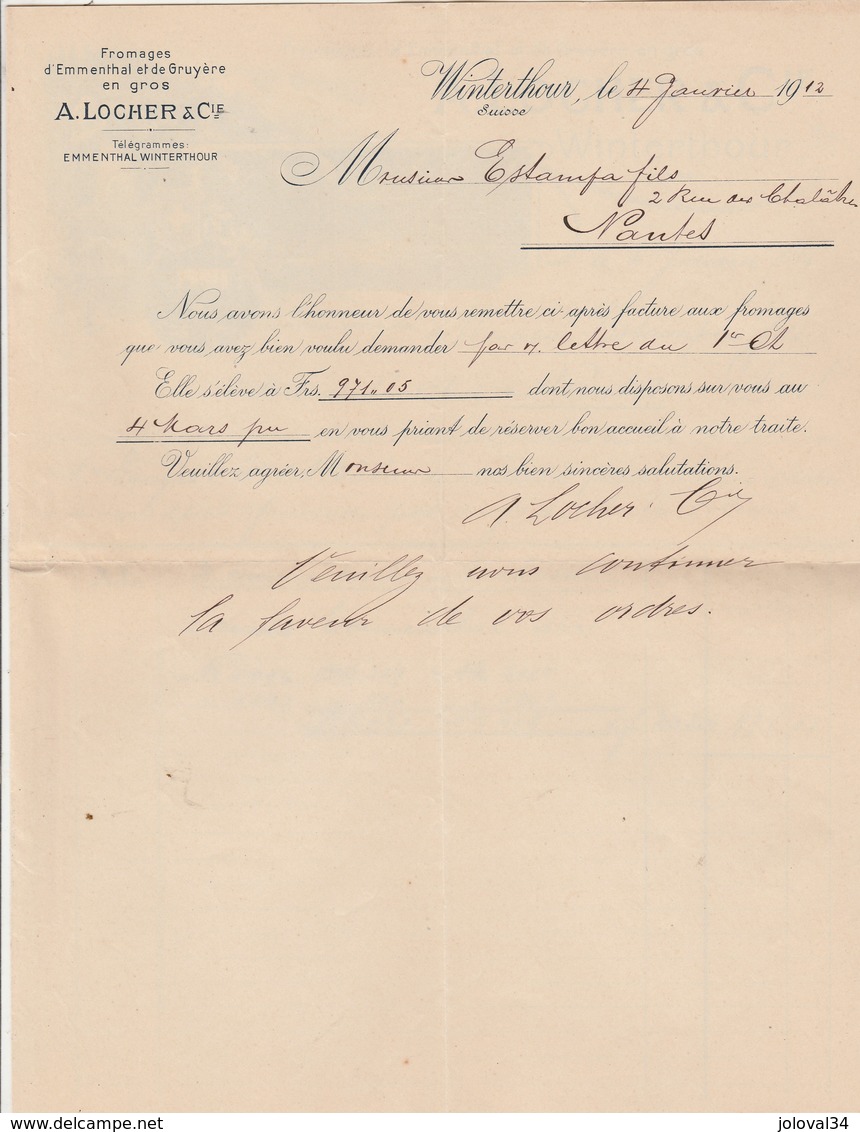 Fromages
d'Emmenthal et de Gruyère
en gros
A. LOCHER & CIE
Télégrammes:
EMMENTHAL WINTERTHOUR
Winterthour, le 4 Janvier 1912
Suisse
Monsieur Estampa fils
2 Rue des
Nantes
Nous avons l'honneur de vous remettre ci-après facture aux fromages
que vous avez bien voulu demander par v. lettre du 1er Ct
Elle s'élève à Frs. 971.,05 dont nous disposons sur vous au
4 Mars pr en vous priant de réserver bon accueil à notre traite.
Veuillez agréer, Monsieur nos bien sincères salutations.
A. Locher. Cie
Veuillez nous continuer
la faveur de vos ordres.
delcampe.net
joloval34